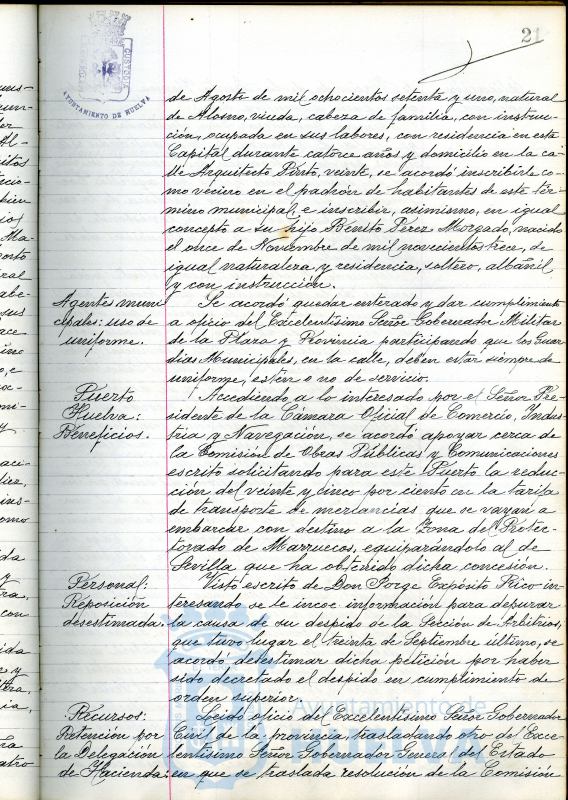 21
AYUNTAMIENTO DE HUELVA
de Agosto de mil ochocientos setenta y uno, natural
de Alosno, viuda, cabeza de familia, con instruc-
ción, ocupada en sus labores, con residencia en esta
Capital durante catorce años y domicilio en la ca-
lle Arquitecto Pinto, veinte, se acordó inscribirle co-
mo vecino en el padrón de habitantes de este tér-
mino municipal, e inscribir, asimismo, en igual
concepto a su hijo Benito Pérez Morgado, nacido
el once de Noviembre de mil novecientos trece, de
igual naturaleza y residencia, soltero, albañil
y con instrucción.
Agentes muni
cipales: uso de
uniforme.
Se acordó quedar enterado y dar cumplimiento
a oficio del Excelentísimo Señor Gobernador Militar
de la Plaza y Provincia participando que los Guar
dias Municipales, en la calle, deben estar siempre de
uniforme, estén o no de servicio.
Puerto
Huelva:
Beneficios.
Accediendo a lo interesado por el Señor Pre-
sidente de la Cámara Oficial de Comercio, Indus-
tria y Navegación, se acordó apoyar cerca de
la Comisión de Obras Públicas y Comunicaciones
escrito solicitando para este Puerto la reduc-
ción del veinte y cinco por ciento en la tarifa
de transporte de mercancías que se vayan a
embarcar con destino a la Zona del Protec-
torado de Marruecos, equiparándolo al de
Sevilla que ha obtenido dicha concesión.
Personal:
Reposición
desestimada.
Visto escrito de Don Jorge Expósito Rico in-
teresando se le incoe información para depurar
la causa de su despido de la Sección de Arbitrios,
que tuvo lugar el treinta de Septiembre último, se
acordó desestimar dicha petición por haber
sido decretado el despido en cumplimiento de
orden superior.
Recursos:
Retención por
la Delegación
de Hacienda:
Leído oficio del Excelentísimo Señor Gobernador
Civil de la provincia, trasladando otro del Exce
lentísimo Señor Gobernador General del Estado
en que se traslada resolución de la Comisión
Ayuntamiento de
HUELVA